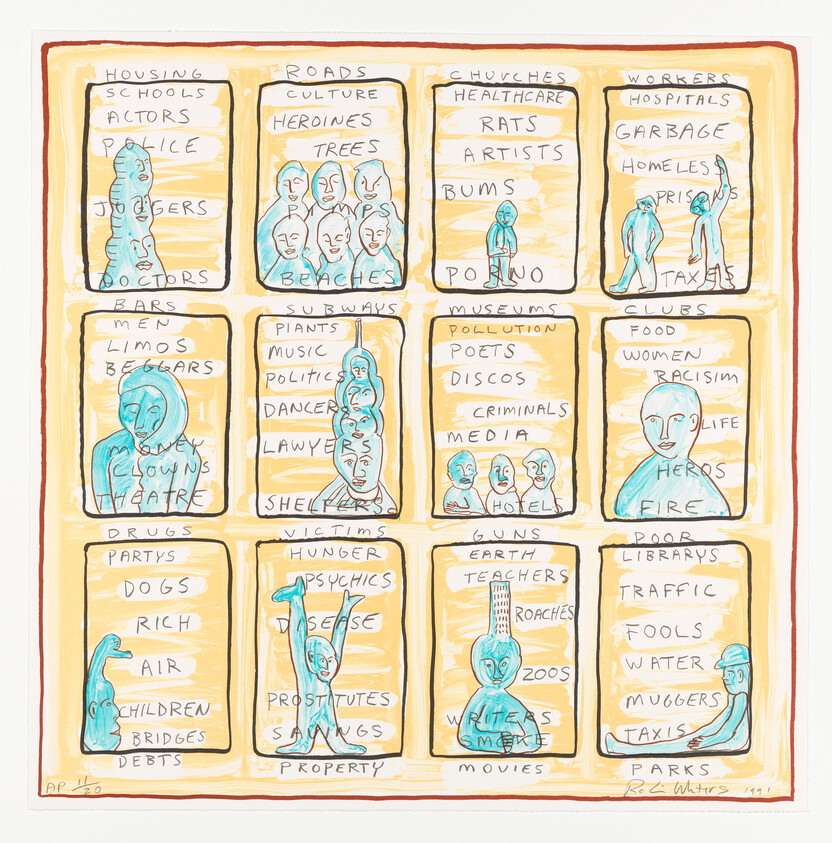 HOUSING
SCHOOLS
ACTORS
POLICE
JOGGERS
DOCTORS
ROADS
CULTURE
HEROINES
TREES
PIMPS
BEACHES
CHURCHES
HEALTHCARE
RATS
ARTISTS
BUMS
PORNO
WORKERS
HOSPITALS
GARBAGE
HOMELESS
PRISONS
TAXES
BARS
MEN
LIMOS
BEGGARS
MONEY
CLOWNS
THEATRE
SUBWAYS
PLANTS
MUSIC
POLITICS
DANCERS
LAWYERS
SHELTERS
MUSEUMS
POLLUTION
POETS
DISCOS
CRIMINALS
MEDIA
HOTELS
CLUBS
FOOD
WOMEN
RACISIM
LIFE
HEROS
FIRE
DRUGS
PARTYS
DOGS
RICH
AIR
CHILDREN
BRIDGES
DEBTS
VICTIMS
HUNGER
PSYCHICS
DISEASE
PROSTITUTES
SAVINGS
PROPERTY
GUNS
EARTH
TEACHERS
ROACHES
ZOOS
WRITERS
SMOKE
MOVIES
POOR
LIBRARYS
TRAFFIC
FOOLS
WATER
MUGGERS
TAXIS
PARKS
AP 11/20
1991